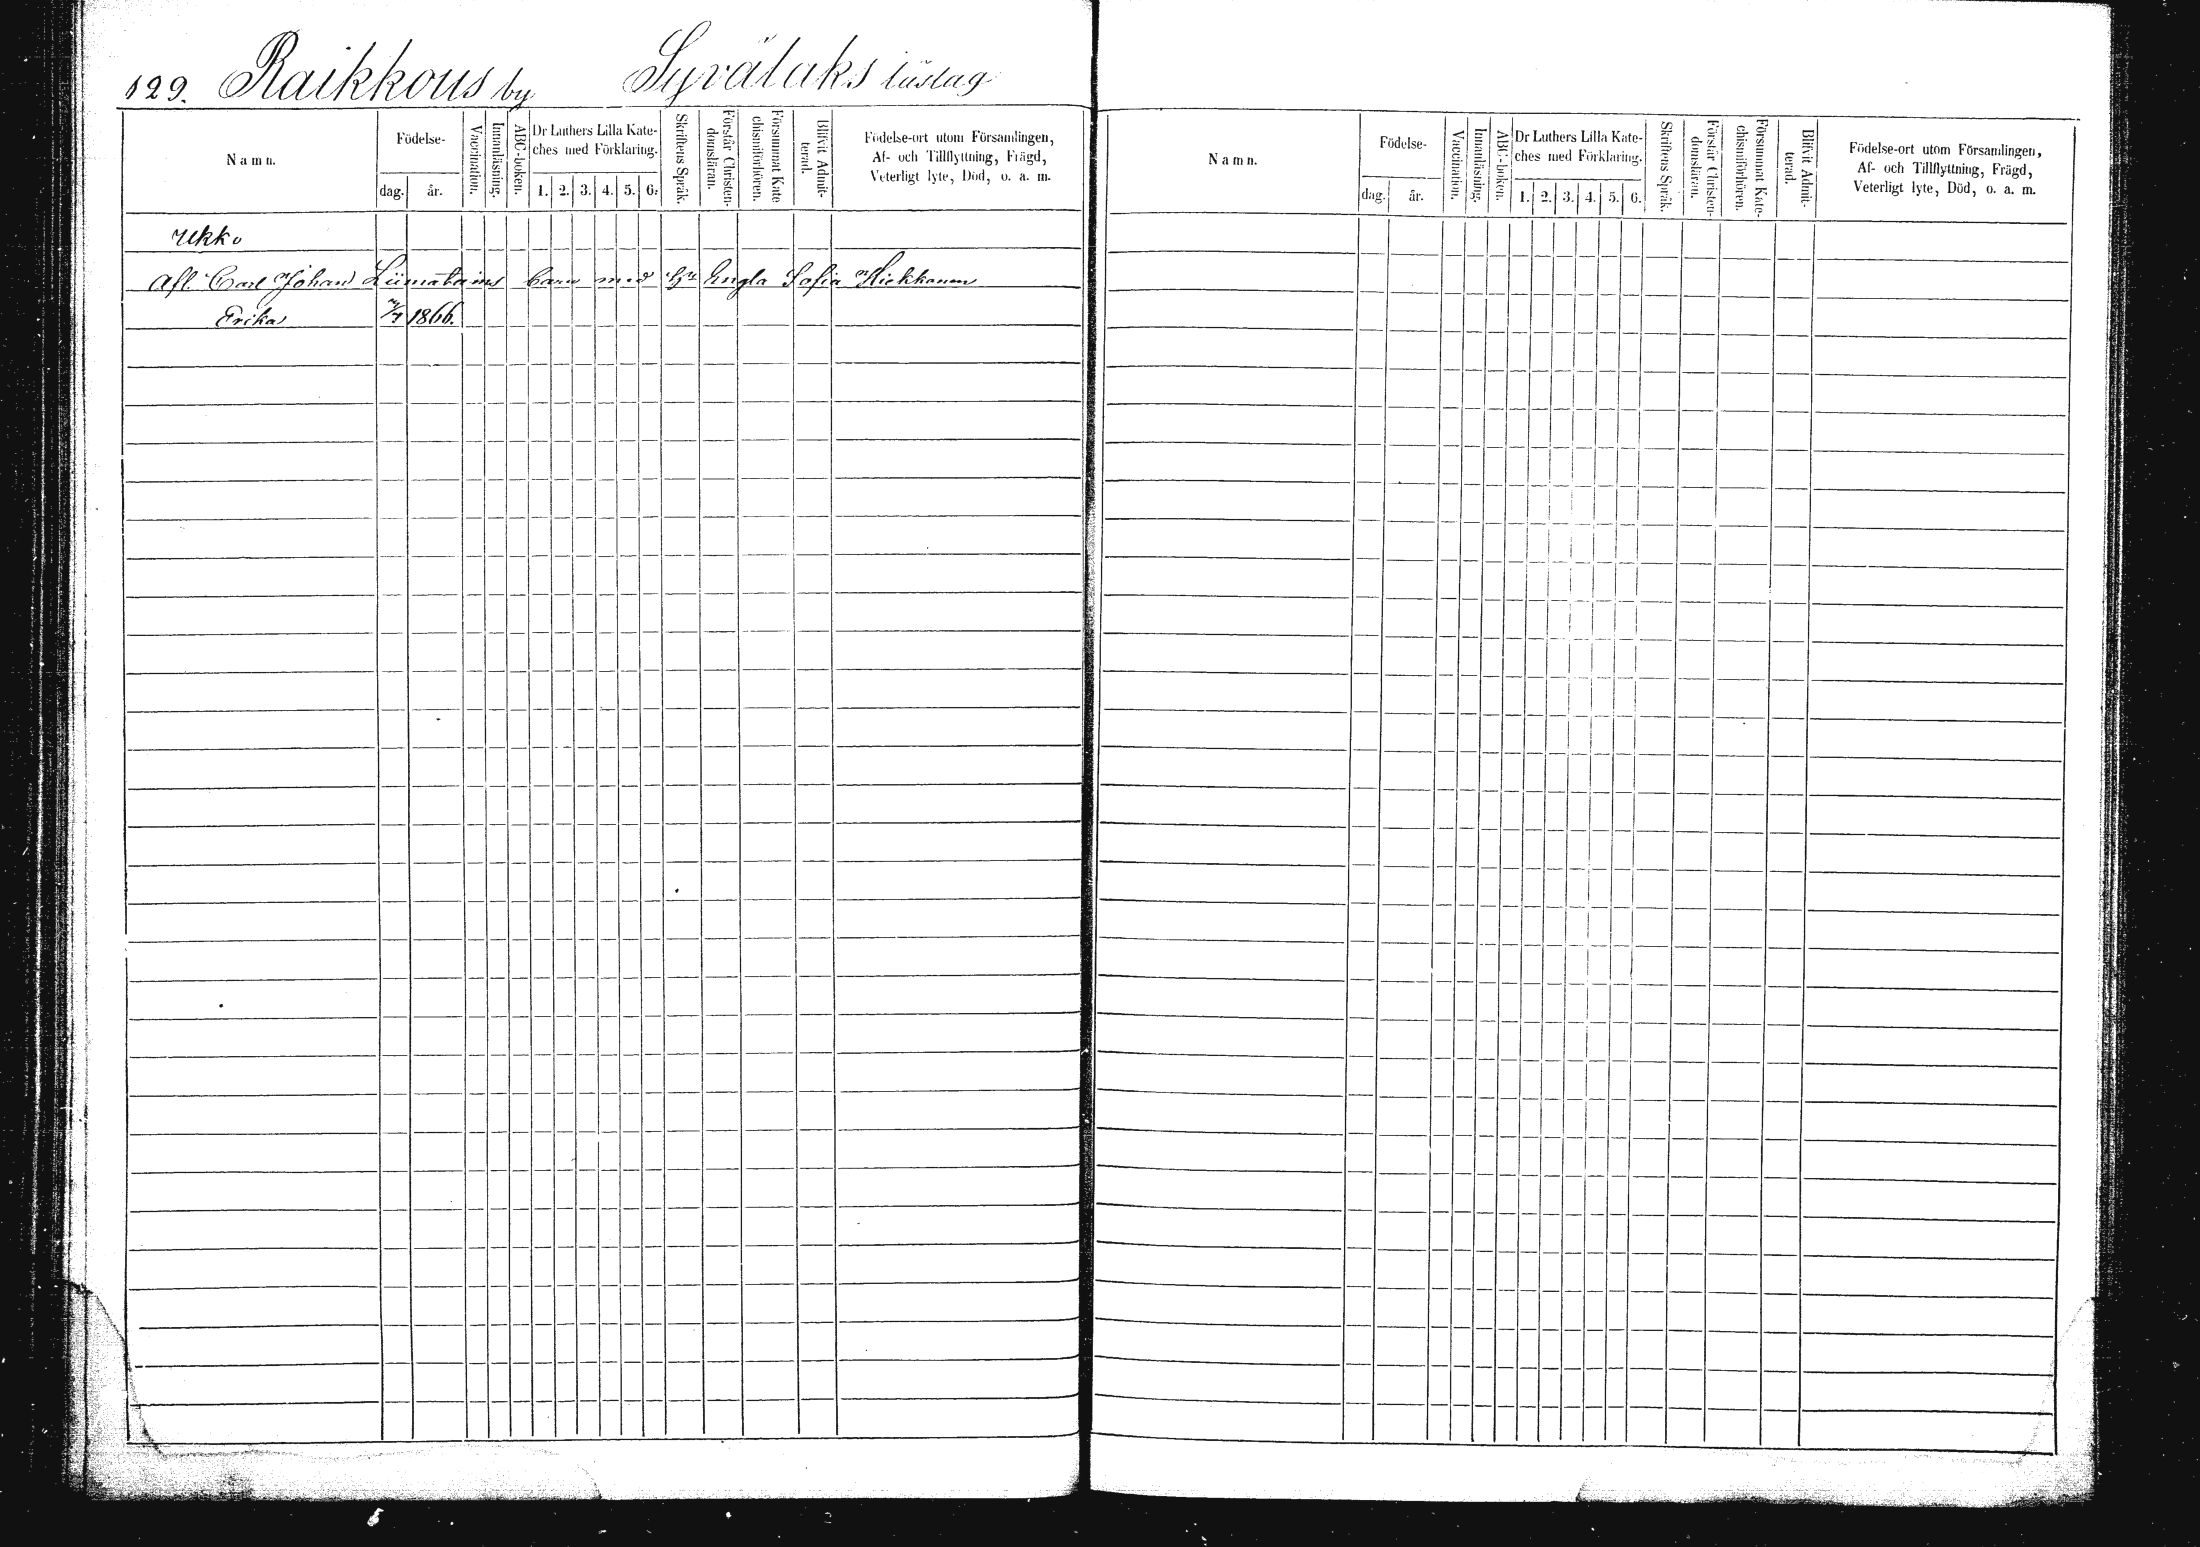 129. Raikkous by Syvälaks läslag
Namn.
Födelse-
dag. år.
Vaccination.
Innanläsning.
ABC-boken.
Dr Luthers Lilla Kate-
ches med Förklaring.
1. 2. 3. 4. 5. 6.
Skriftens Språk.
Förstår Christen-
domsläran.
Försummat Kate
chismiförhören.
Blifvit Admit-
terad.
Födelse-ort utom Församlingen,
Af- och Tillflyttning, Frägd,
Veterligt lyte, Död, o. a. m.
Ukko
Afl. Carl Johan Liimatains barn med Engla Sofia Hiekkanen
Erika 1866.
Namn.
Födelse-
dag. år.
Vaccination.
Innanläsning.
ABC-boken.
Dr Luthers Lilla Kate-
ches med Förklaring.
1. 2. 3. 4. 5. 6.
Skriftens Språk.
Förstår Christen-
domsläran.
Försummat Kate-
chismiförhören.
Blifvit Admit-
terad.
Födelse-ort utom Församlingen,
Af- och Tillflyttning, Frägd,
Veterligt lyte, Död, o. a. m.